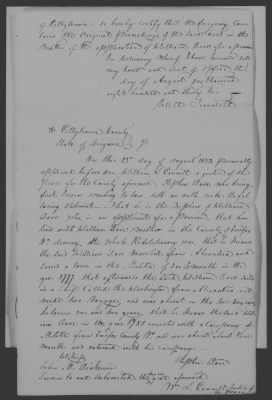 of Pittsylvania do hereby certify that the foregoing Con
tains the Original Proceedings of the said Court in the
Matter of the application of William Dove for a pension
In testimony Whereof I have hereunto set
my hand and Seal of office this
day of August
eight hundred and thirty two

Pittsylvania County
State of Virginia
On this 13th day of August 1832 personally
appeared before me William L. Pannill a Justice of the
Peace for the County aforesaid Stephen Dove who being
first Sworn according to law doth on oath make the fol
lowing statement. That he is the Nephew of William
Dove who is an applicant for a Pension, that he
lived with William Dove's Mother in the County of Fairfax
Va. during the Whole Revolutionary war, that he knows
the said William Dove Marched from Alexandria and
was in the Battle of in the year
1777 that afterwards the said William Dove sailed
in a Ship Called the Washington from Alexandria and
made two Voyages, and was absent in the two Voyages
between one and two years, that he knows the said Will
iam Dove in the year 1781 marched with a Company of
Militia from Fairfax County Va. and was absent about three
Months and returned with the Company
Stephen Dove
John M.
Sworn to and Subscribed the day aforesaid
Wm L. Pannill Justice of
the Peace